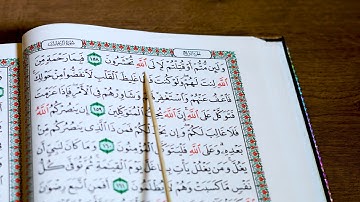 وَلَئِن مُّتُّمْ أَوْ قُتِلْتُمْ لَإِلَى ٱللَّهِ تُحْشَرُونَ ١٥٨ فَبِمَا رَحْمَةٍ مِّنَ
ٱللَّهِ لِنتَ لَهُمْ وَلَوْ كُنتَ فَظًّا غَلِيظَ ٱلْقَلْبِ لَٱنفَضُّوا۟ مِنْ حَوْلِكَ
فَٱعْفُ عَنْهُمْ وَٱسْتَغْفِرْ لَهُمْ وَشَاوِرْهُمْ فِى ٱلْأَمْرِ فَإِذَا عَزَمْتَ
فَتَوَكَّلْ عَلَى ٱللَّهِ إِنَّ ٱللَّهَ يُحِبُّ ٱلْمُتَوَكِّلِينَ ١٥٩ إِن يَنصُرْكُمُ ٱللَّهُ
فَلَا غَالِبَ لَكُمْ وَإِن يَخْذُلْكُمْ فَمَن ذَا ٱلَّذِى يَنصُرُكُم مِّنۢ
بَعْدِهِۦ وَعَلَى ٱللَّهِ فَلْيَتَوَكَّلِ ٱلْمُؤْمِنُونَ ١٦٠ وَمَا كَانَ لِنَبِىٍّ أَن
يَغُلَّ وَمَن يَغْلُلْ يَأْتِ بِمَا غَلَّ يَوْمَ ٱلْقِيَٰمَةِ ثُمَّ تُوَفَّىٰ كُلُّ
نَفْسٍ مَّا كَسَبَتْ وَهُمْ لَا يُظْلَمُونَ ١٦١ أَفَمَنِ ٱتَّبَعَ رِضْوَٰنَ